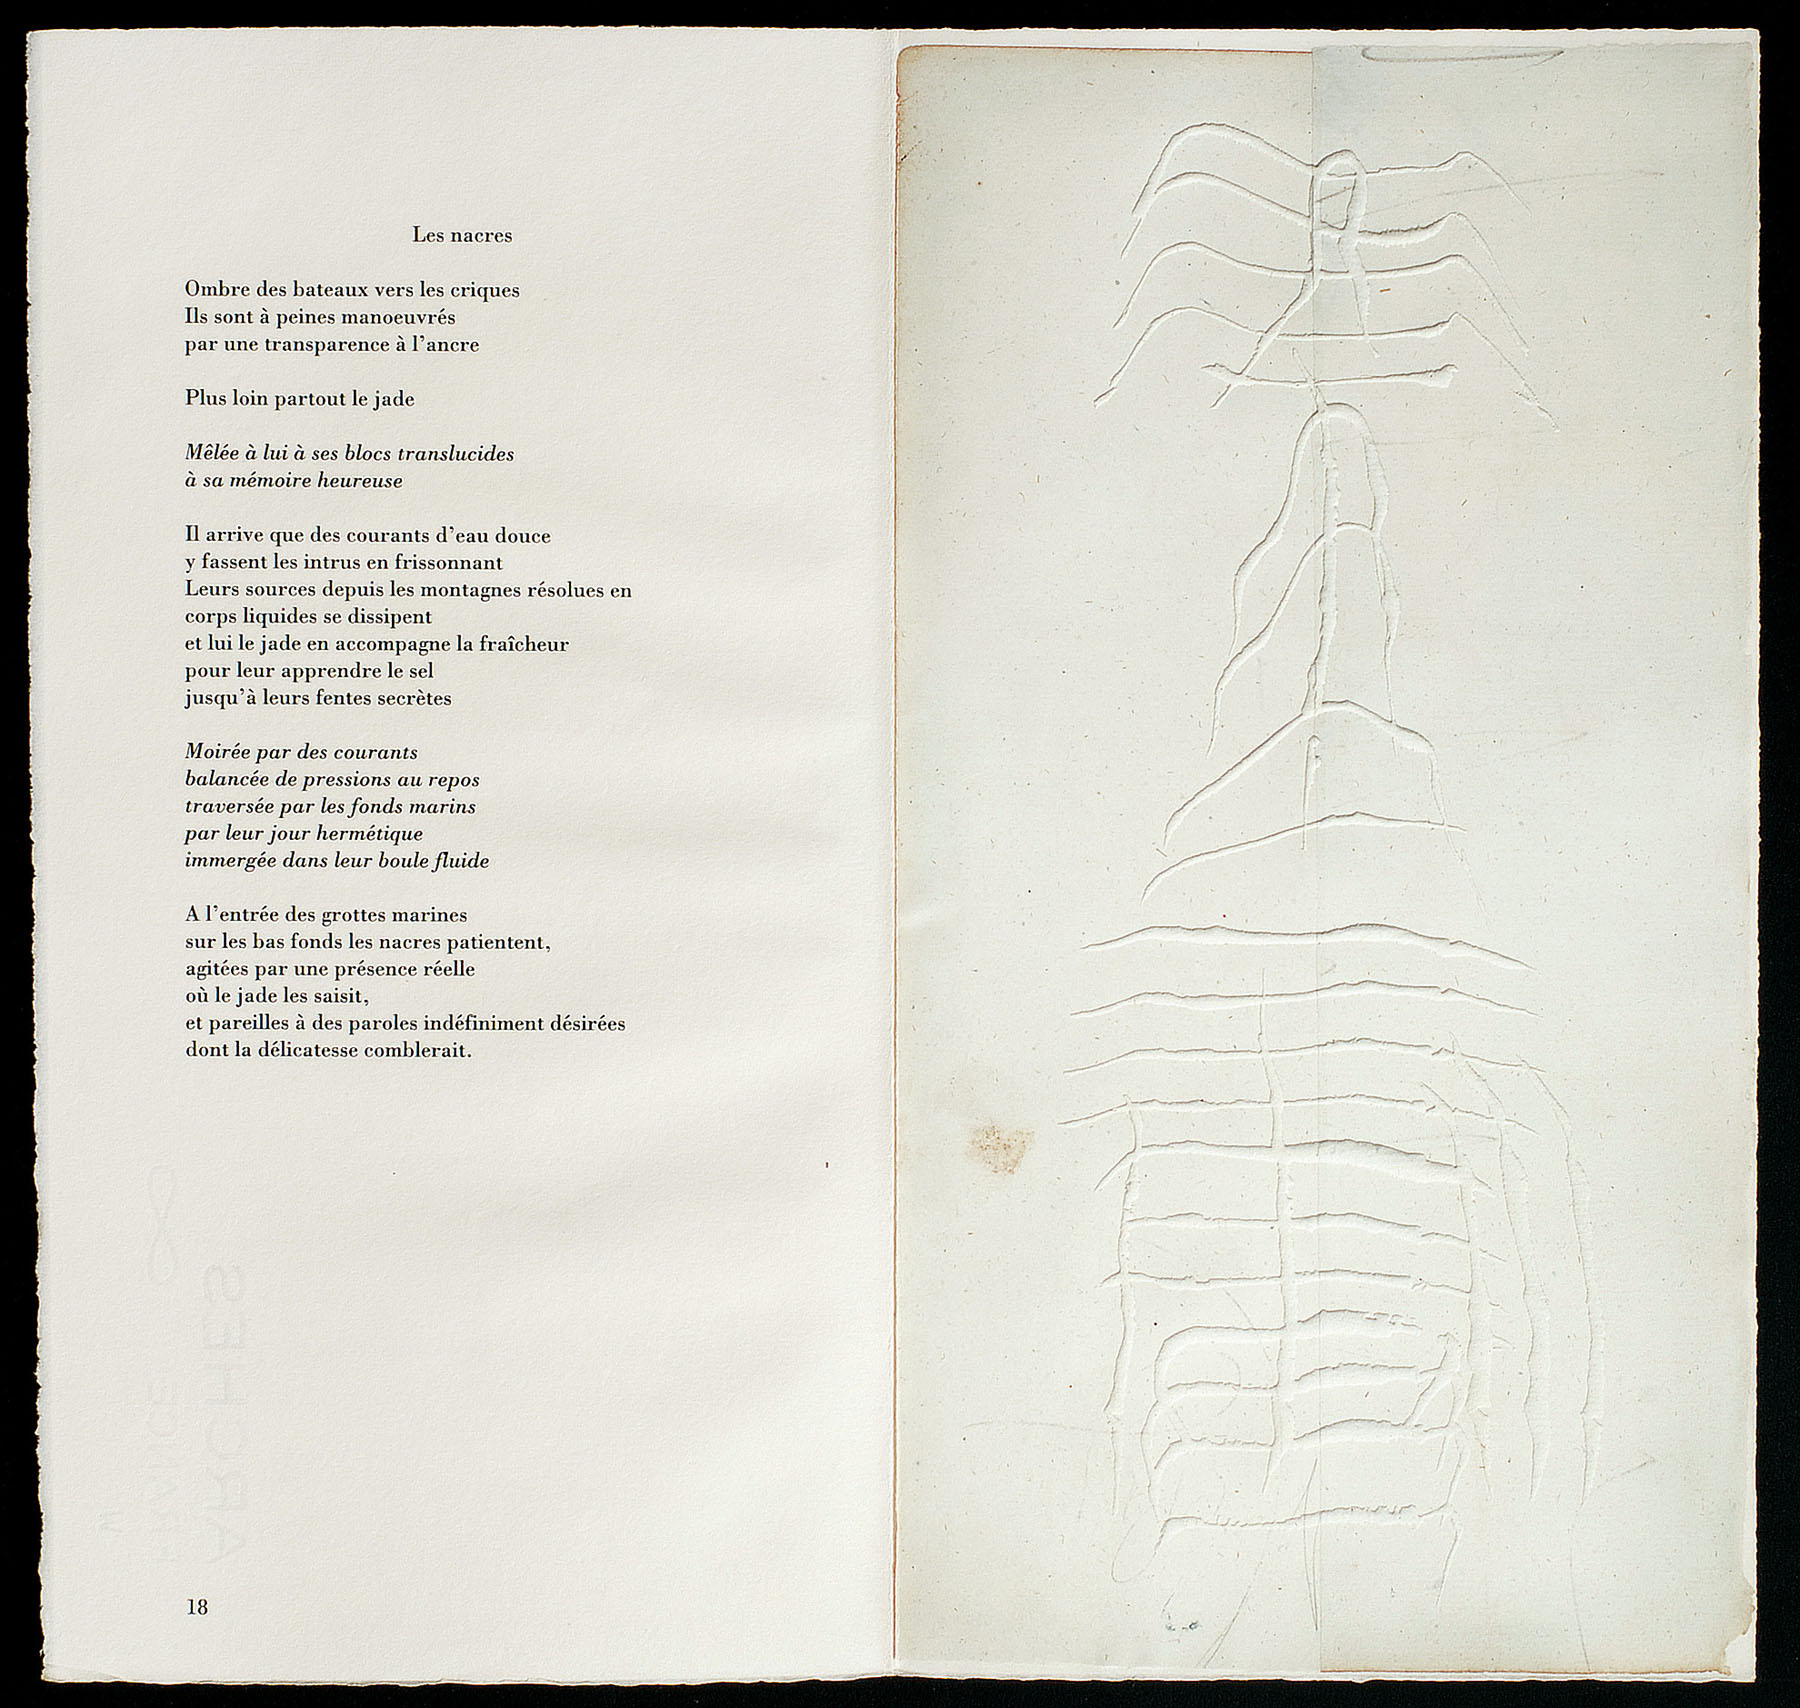 Les nacres
Ombre des bateaux vers les criques
Ils sont à peines manoeuvrés
par une transparence à l'ancre
Plus loin partout le jade
Mêlée à lui à ses blocs translucides
à sa mémoire heureuse
Il arrive que des courants d'eau douce
y fassent les intrus en frissonnant
Leurs sources depuis les montagnes résolues en
corps liquides se dissipent
et lui le jade en accompagne la fraîcheur
pour leur apprendre le sel
jusqu'à leurs fentes secrètes
Moirée par des courants
balancée de pressions au repos
traversée par les fonds marins
par leur jour hermétique
immergée dans leur boule fluide
A l'entrée des grottes marines
sur les bas fonds les nacres patientent,
agitées par une présence réelle
où le jade les saisit,
et pareilles à des paroles indéfiniment désirées
dont la délicatesse comblerait.
ARCHES
FRANCE
18